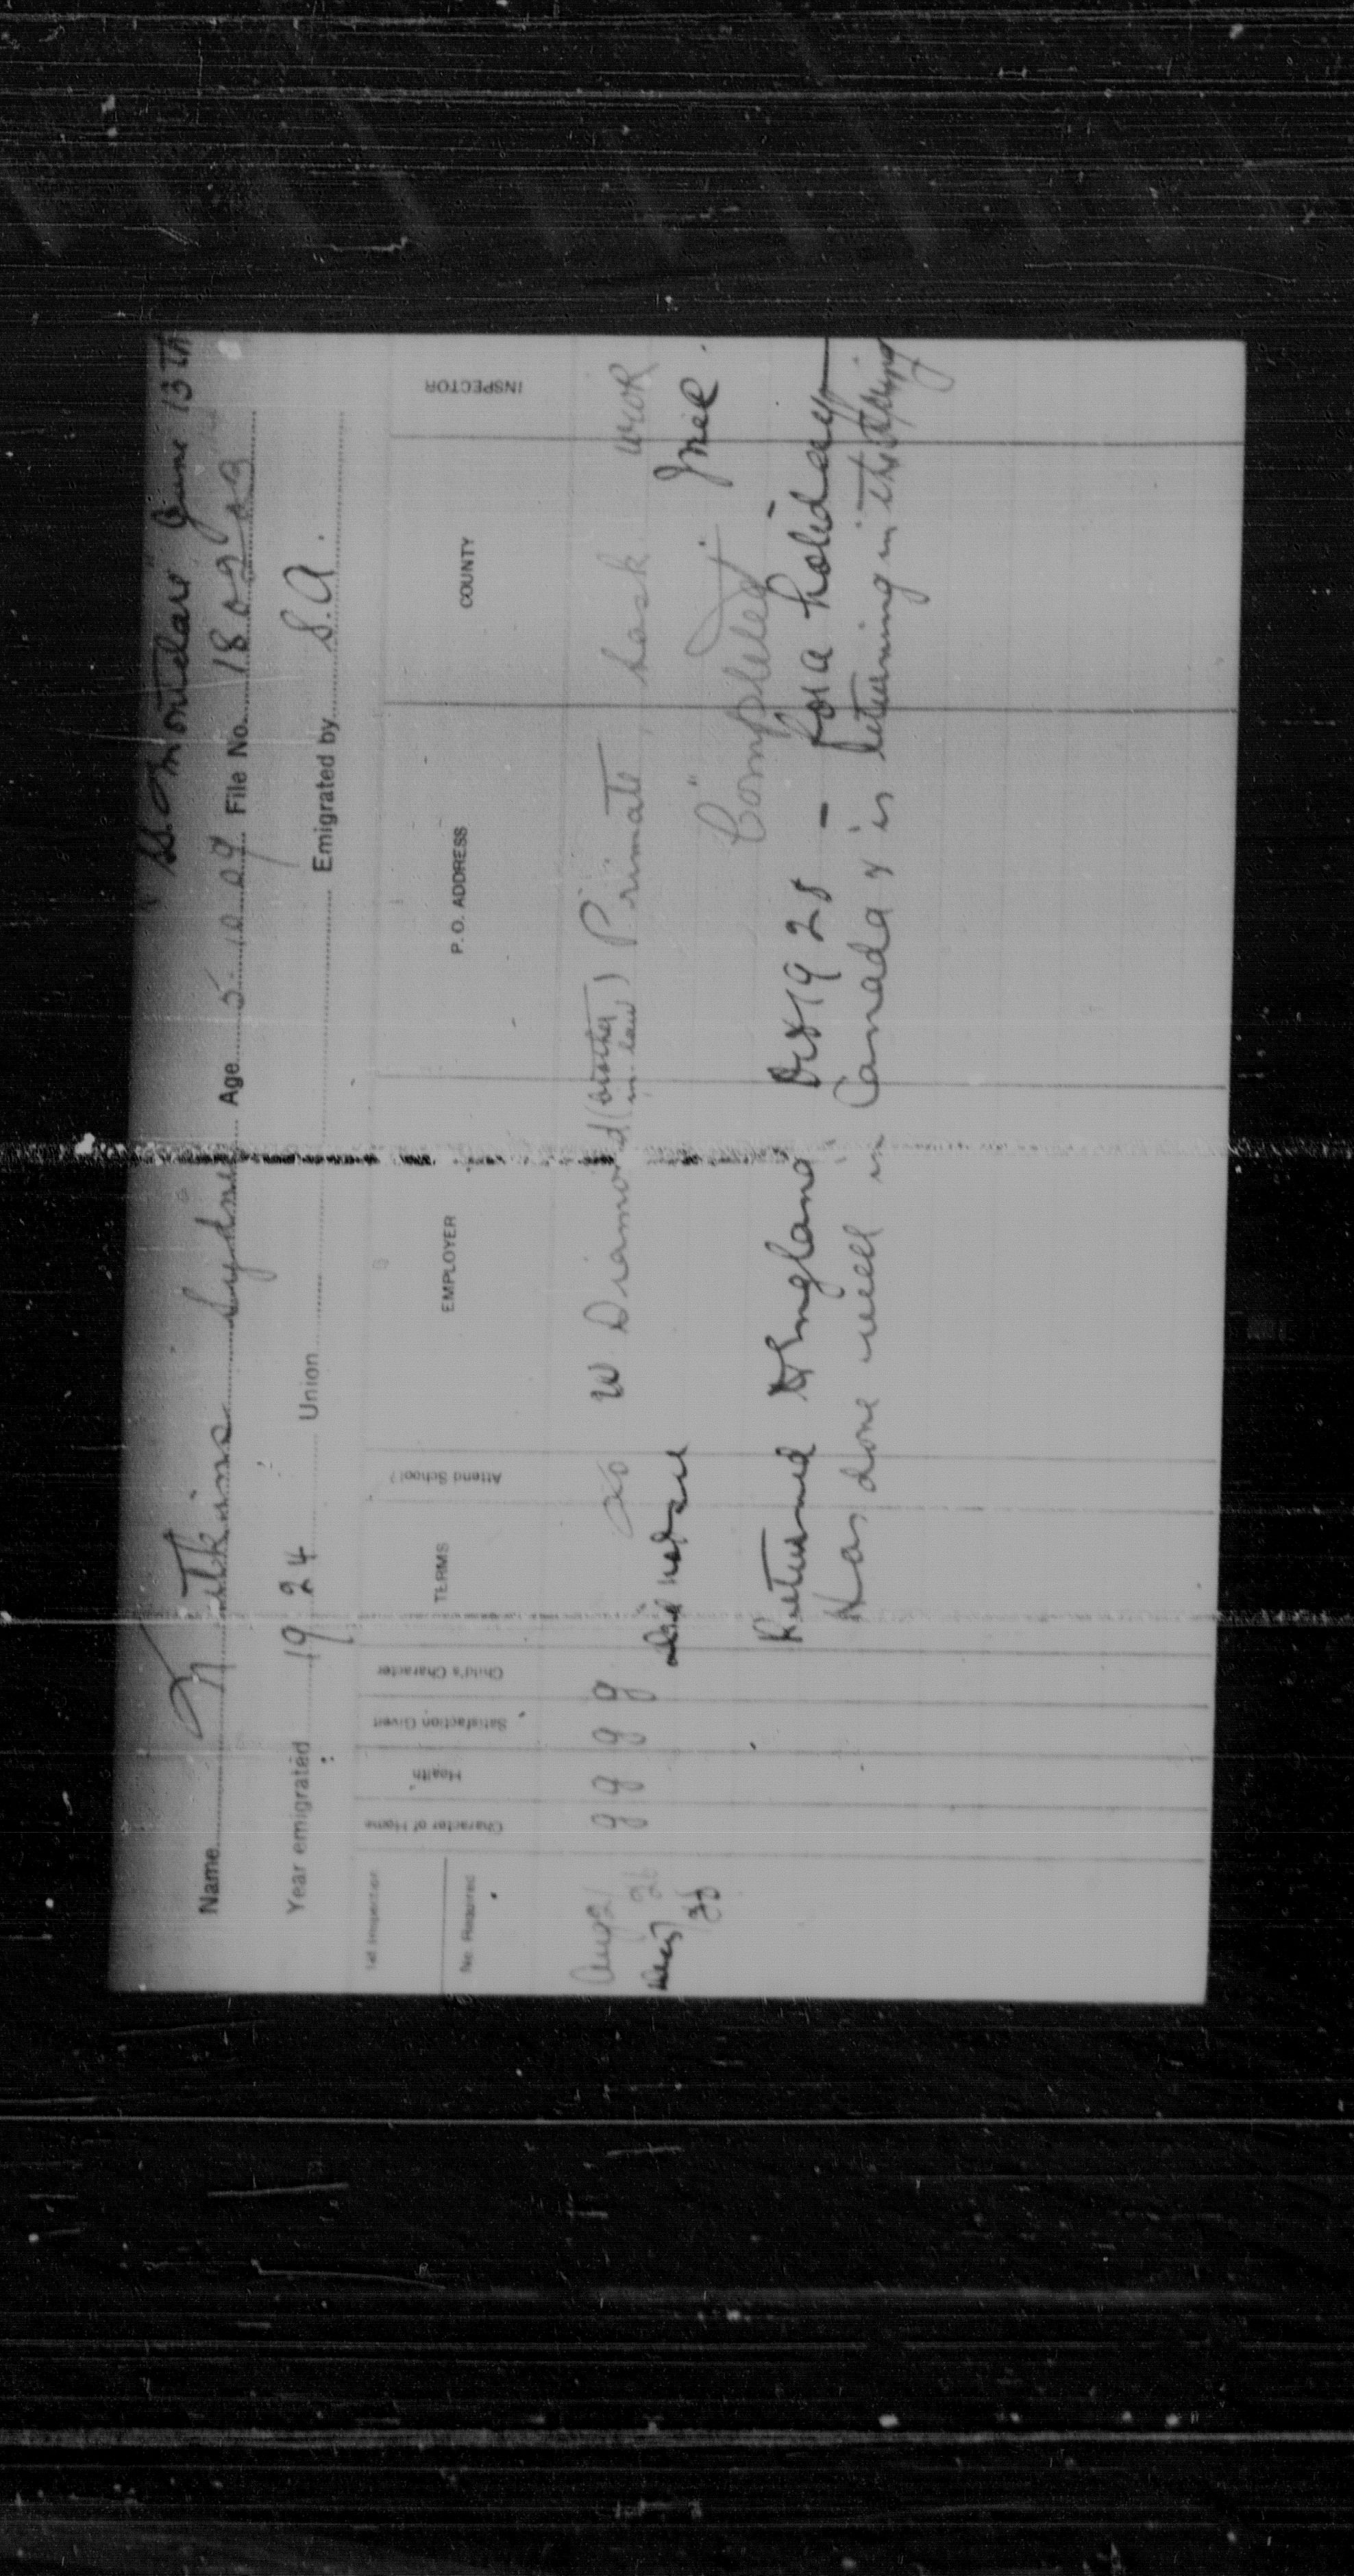 S.S. Montclare June 13th
Name Watkins Sydney Age 5.10.09 File No. 180203
Year emigrated 1924 Union Emigrated by S.A.
Character of Home Health Satisfaction Given Child's Character TERMS Attend School? EMPLOYER P. O. ADDRESS COUNTY INSPECTOR
No. Required
Aug 21 26 g g g g W. Diamond (brother in law) Primate, Sask
Did not see
Completed
Returned to England Dec 1928 - for a holiday -
Has done well in Canada & is returning in the Spring